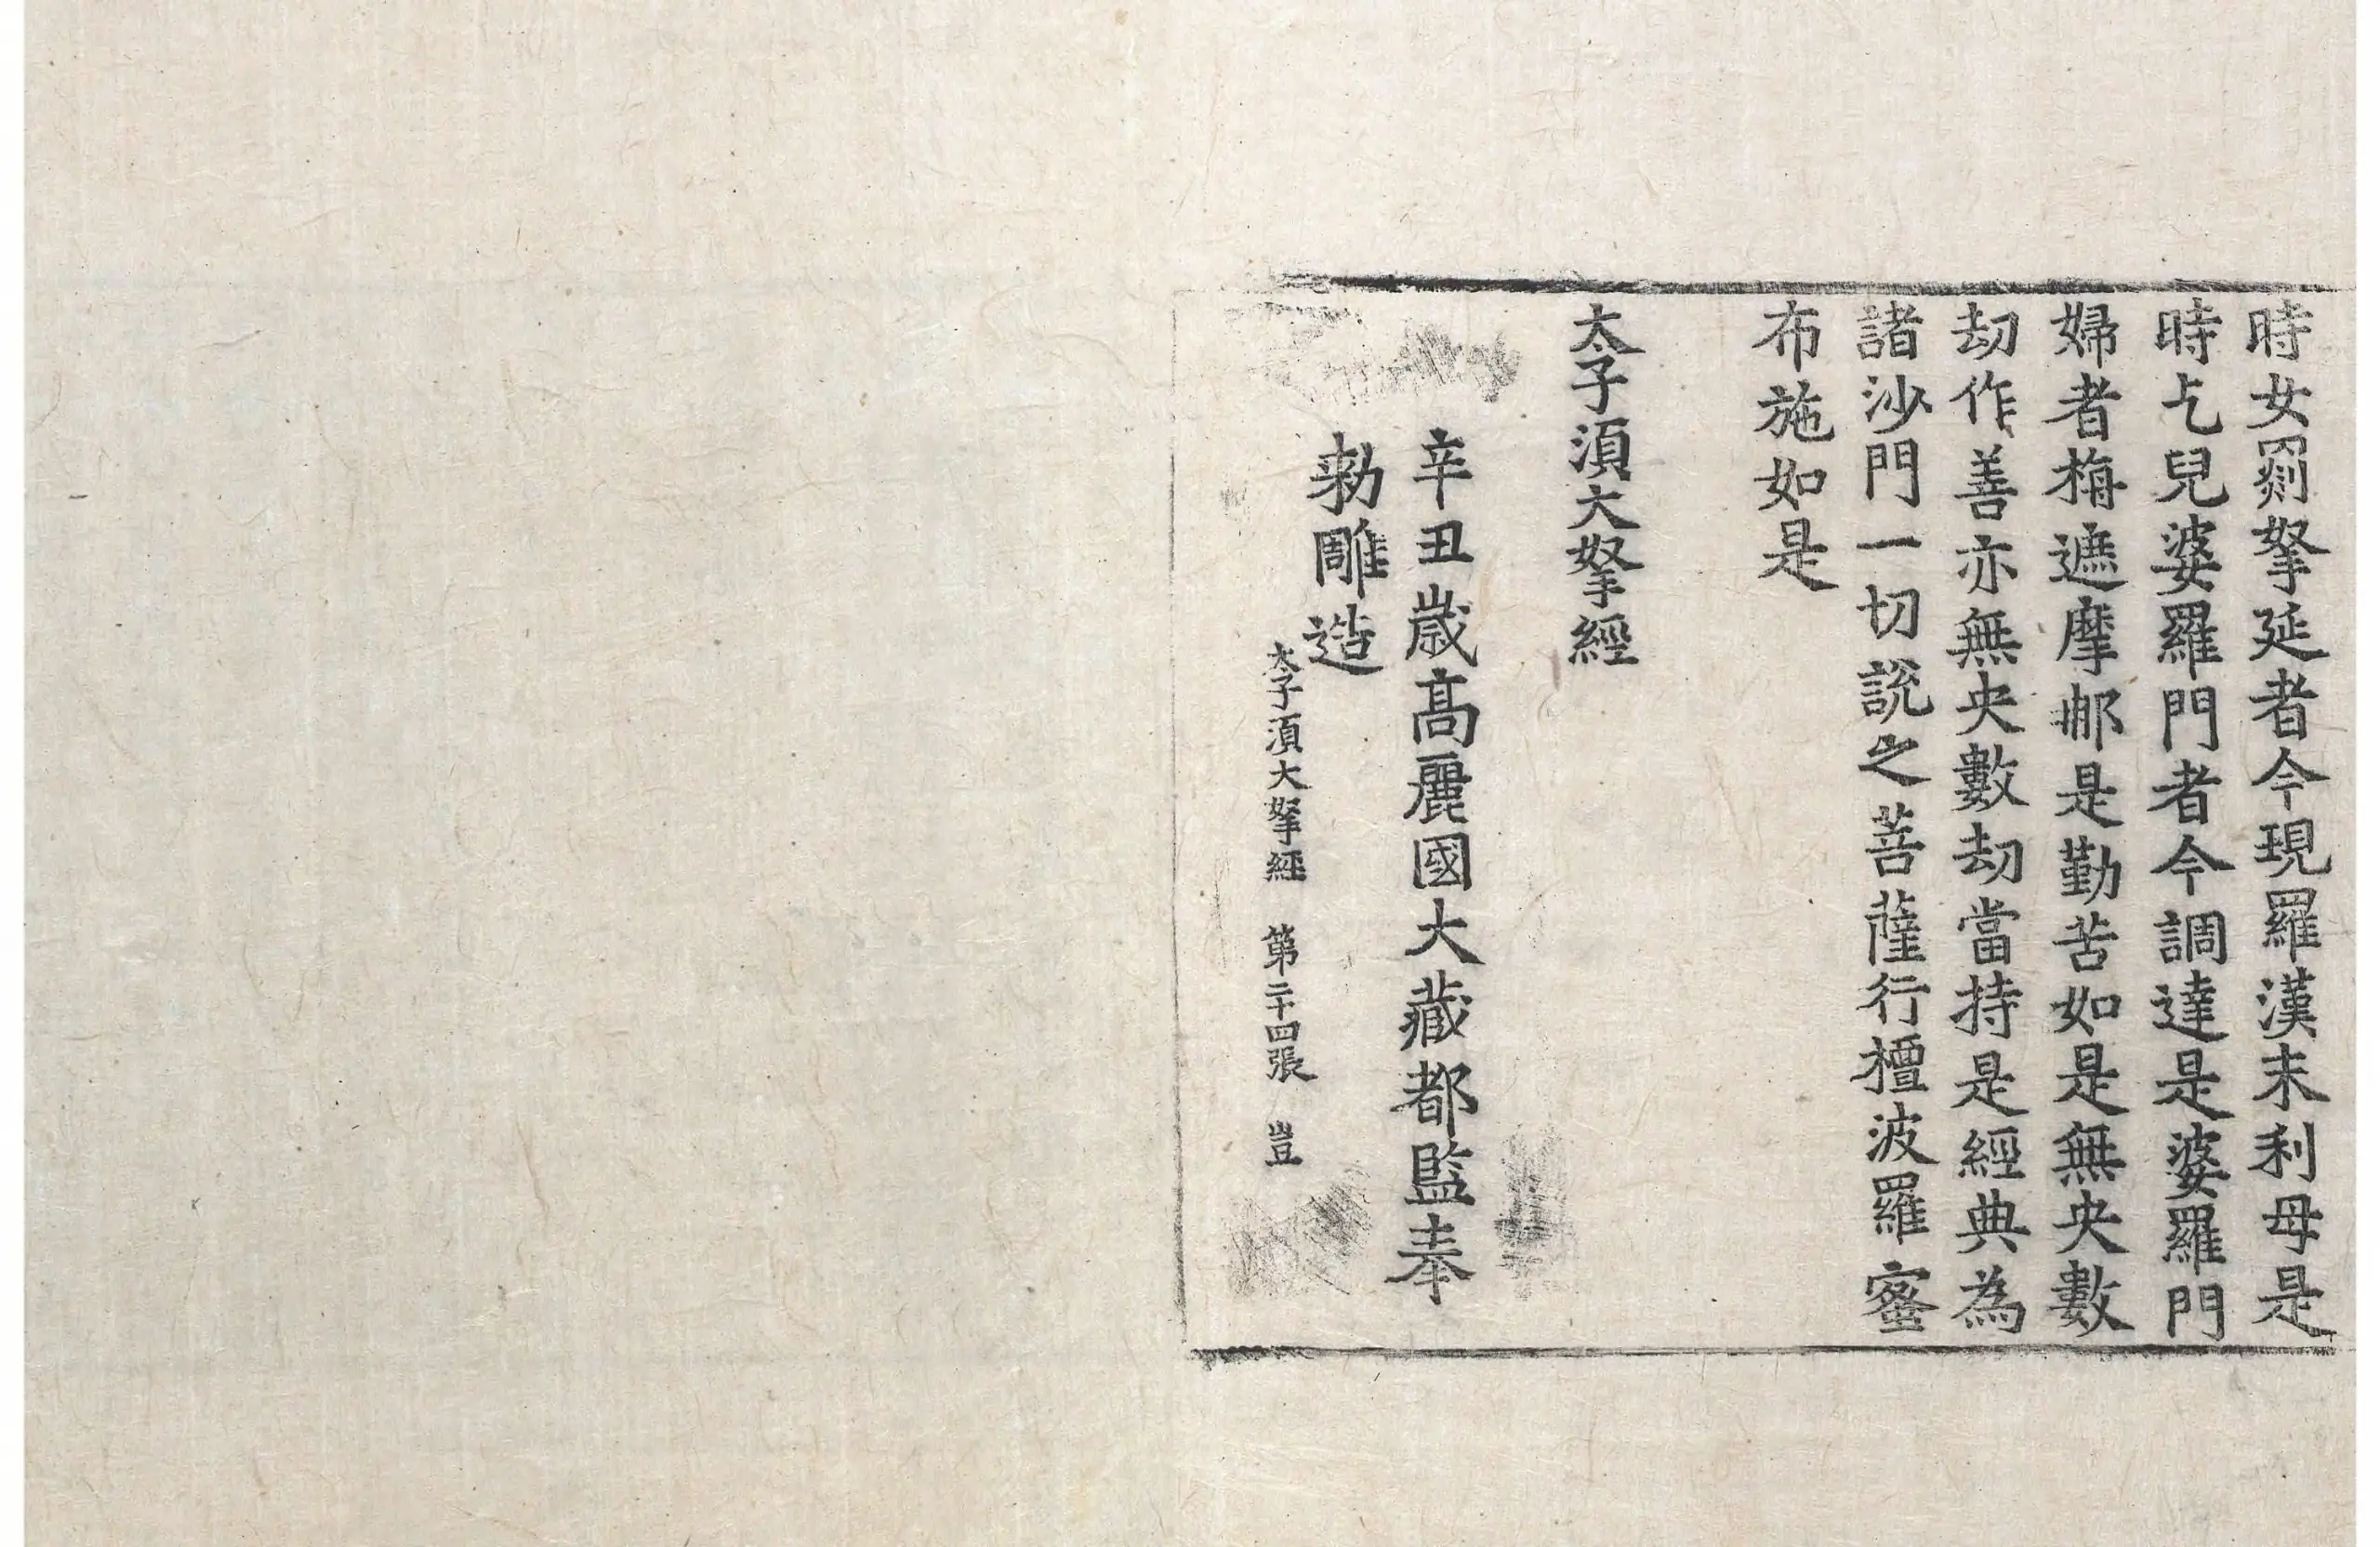 時女罽拏延者今現羅漢末利母是
時乞兒婆羅門者今調達是婆羅門
婦者栴遮摩那是勤苦如是無央數
劫作善亦無央數劫當持是經典為
諸沙門一切說之菩薩行檀波羅蜜
布施如是
太子須大拏經
辛丑歲高麗國大藏都監奉
勅雕造
太子須大拏經 第二十四張 豈